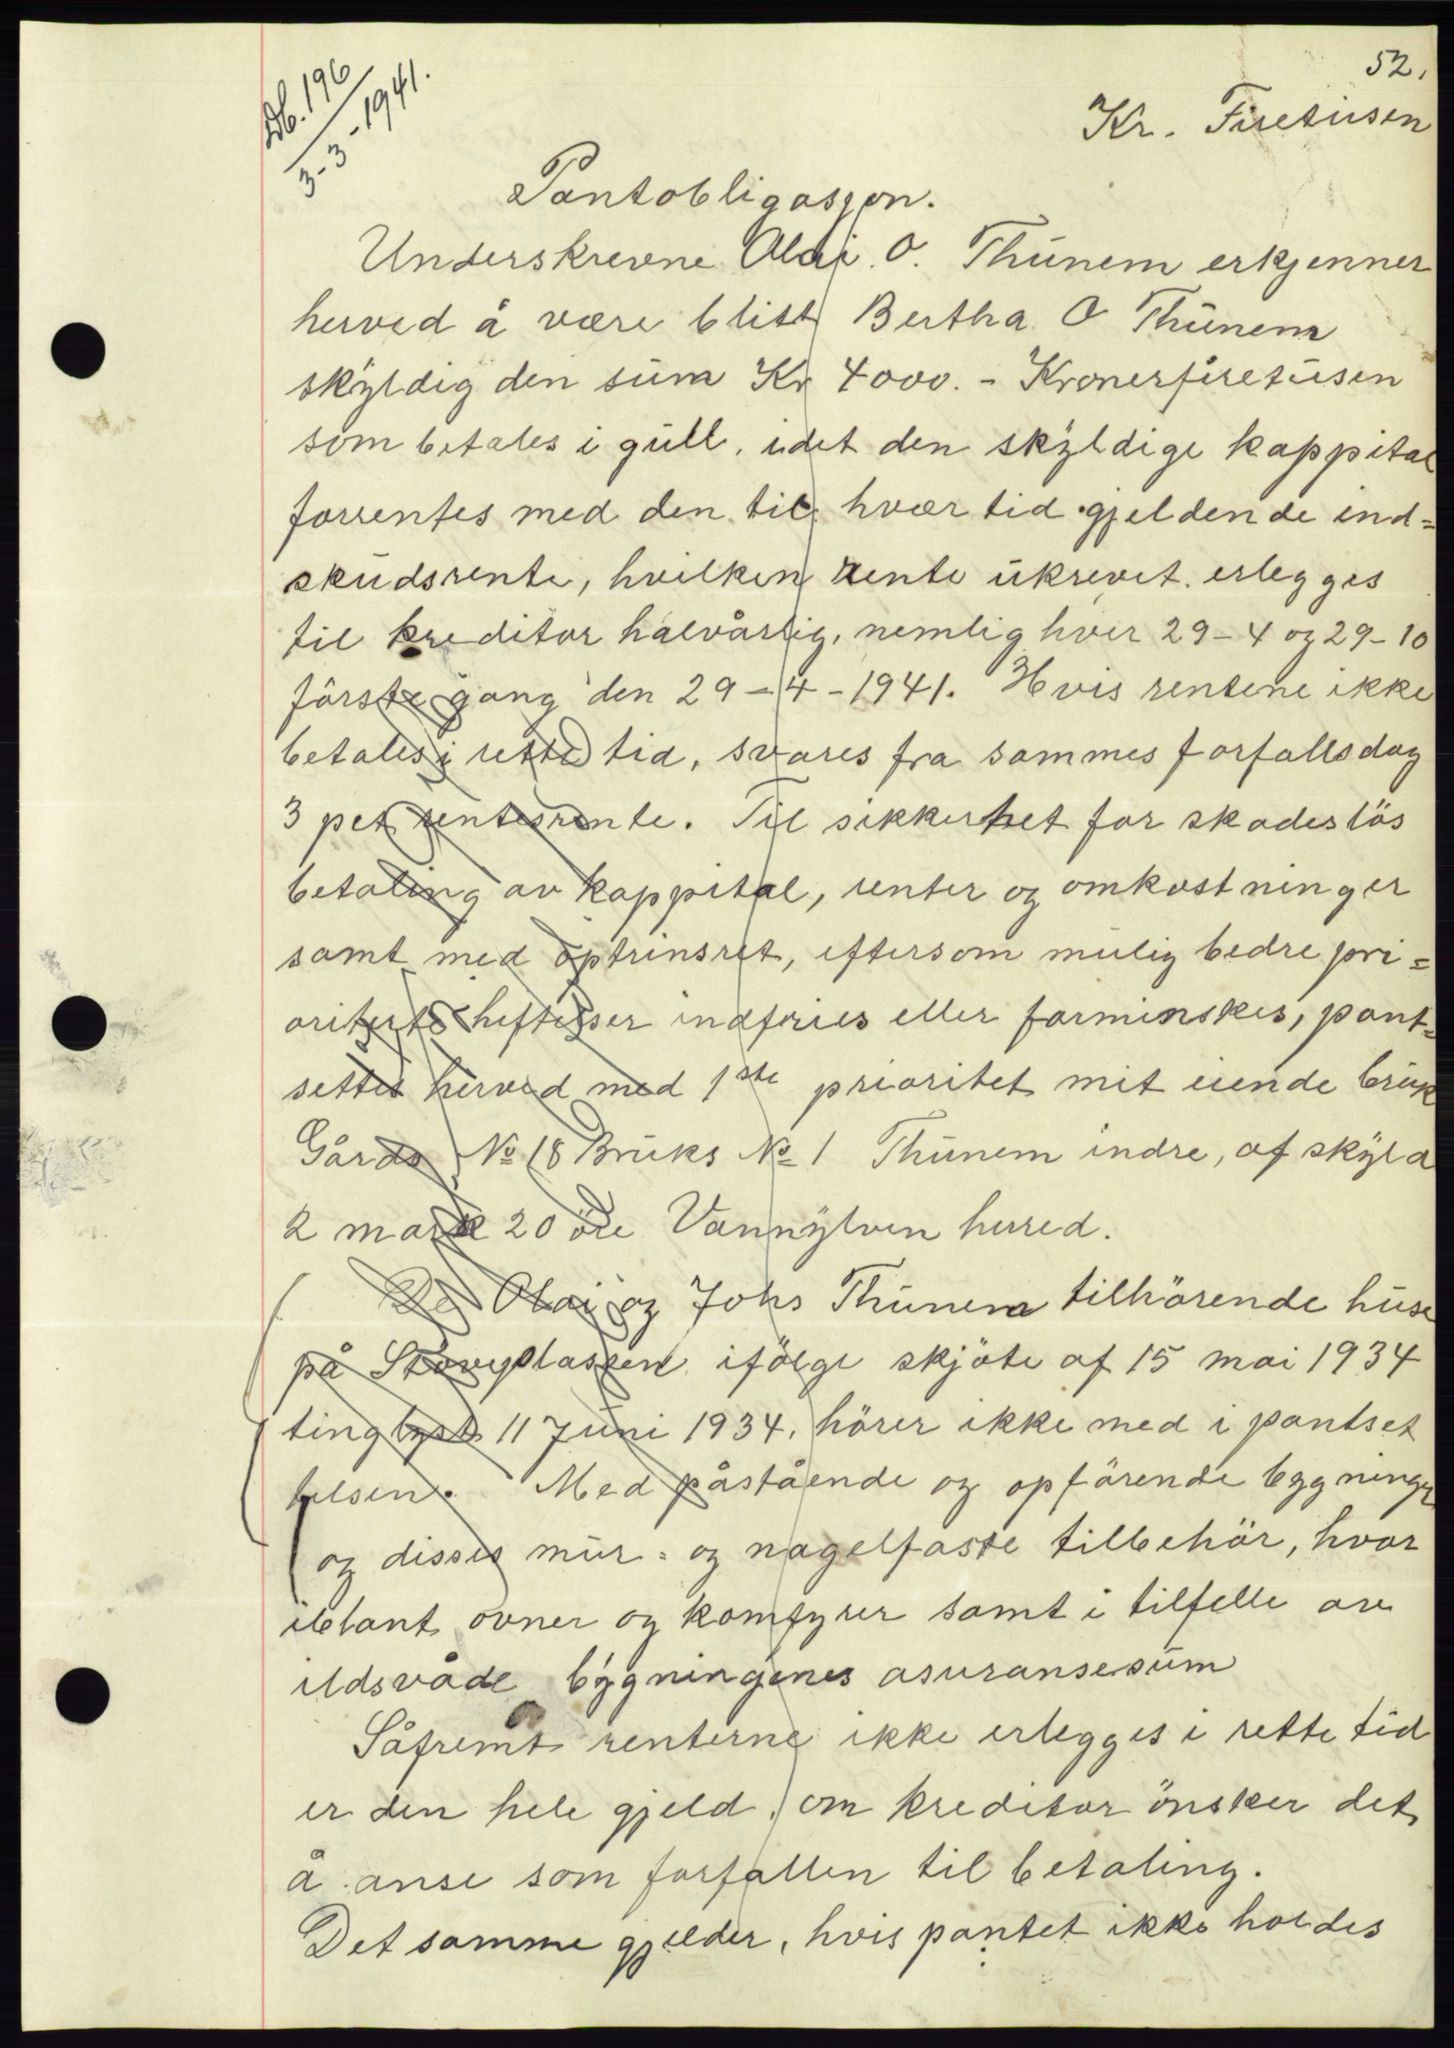 52.
Db. 196
3-3-1941.
Kr. Firetusen
Pantobligasjon.
Underskrevne Olai. O. Thunem erkjenner
herved å være blitt Bertha O Thunem
skyldig den sum Kr 4000.- Kronerfiretusen
som betales i gull, idet den skyldige kappital
forrentes med den til hvær tid gjeldende ind=
skudsrente, hvilken rente ukrevet erlegges
til kreditor halvårlig, nemlig hver 29-4 og 29-10
förste gang den 29-4-1941. Hvis rentene ikke
betales i rette tid, svares fra sammes forfallsdag
3 pct rentesrente. Til sikkerhet for skadeslös
betaling av kappital, renter og omkostninger
samt med optrinsret, eftersom mulig bedre pri=
oriterte heftelser indfries eller forminskes, pant=
settes herved med 1ste prioritet mit eiende bruk
Gårds No 18 Bruks No 1 Thunem indre, af skyld
2 mark 20 öre Vannylven herred.
De Olai og Johs Thunem tilhörende huse
på Stöveplassen ifölge skjöte af 15 mai 1934
tinglyst 11 Juni 1934, hörer ikke med i pantset
telsen. Med påstående og opförende bygninger
og disses mur= og nagelfaste tilbehör, hvor
iblant ovner og komfyrer samt i tilfelle av
ildsvåde bygningenes asuransesum
Såfremt renterne ikke erlegges i rette tid
er den hele gjeld, om kreditor önsker det,
å anse som forfallen til betaling.
Det samme gjelder, hvis pantet ikke holdes